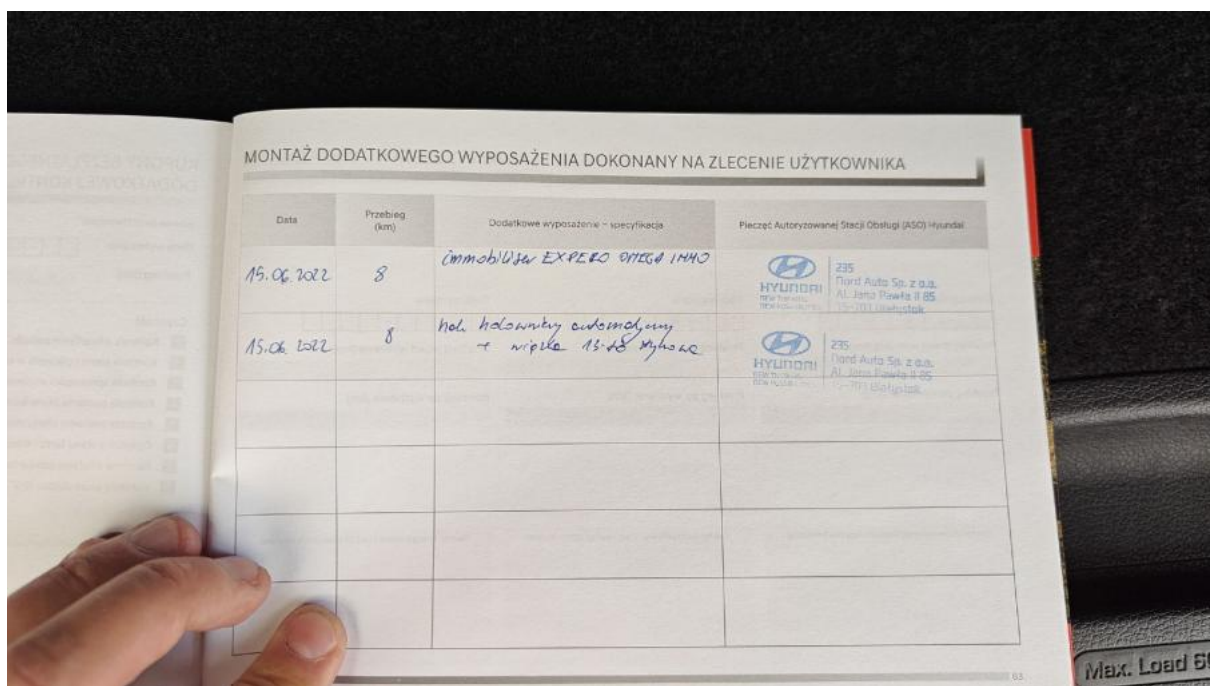 MONTAŻ DODATKOWEGO WYPOSAŻENIA DOKONANY NA ZLECENIE UŻYTKOWNIKA
Data
Przebieg
(km)
Dodatkowe wyposażenie – specyfikacja
Pieczęć Autoryzowanej Stacji Obsługi (ASO) Hyundai
15.06.2022
8
immobiliser EXPERO OMEGA IMMO
HYUNDAI
235
Nord Auto Sp. z o.o.
Al. Jana Pawła II 85
15-703 Białystok
15.06.2022
8
hak holowniczy automatyczny
+ wiązka 13-to stykowa
HYUNDAI
235
Nord Auto Sp. z o.o.
Al. Jana Pawła II 85
15-703 Białystok
63
Max. Load